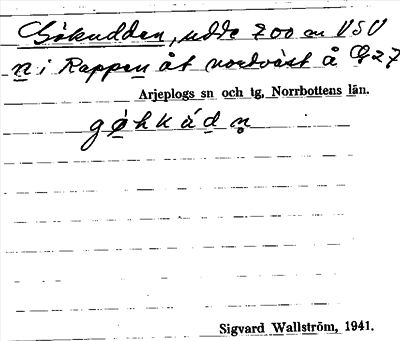 Gökudden, udde 700 m VSV
n i Rappen åt nordväst å G27
Arjeplogs sn och tg, Norrbottens län.
gö̀hkádn̥
Sigvard Wallström, 1941.